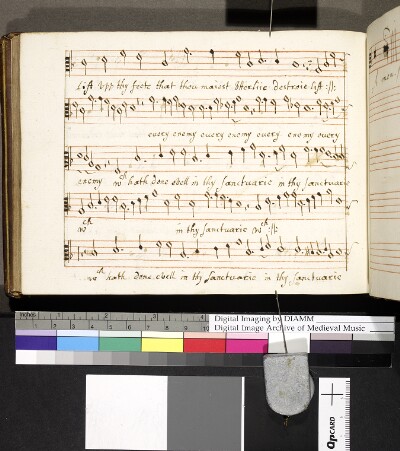 Lift Upp thy feete that thou mayest Utterlie destroie lift :||:
every enemy every enemy every enemy every
enemy wch hath done evell in thy Sanctuarie in thy Sanctuarie
wch in thy Sanctuarie wch :||:
wch hath done evell in thy Sanctuarie in thy Sanctuarie
Digital Imaging by DIAMM
Digital Image Archive of Medieval Music
QPCARD